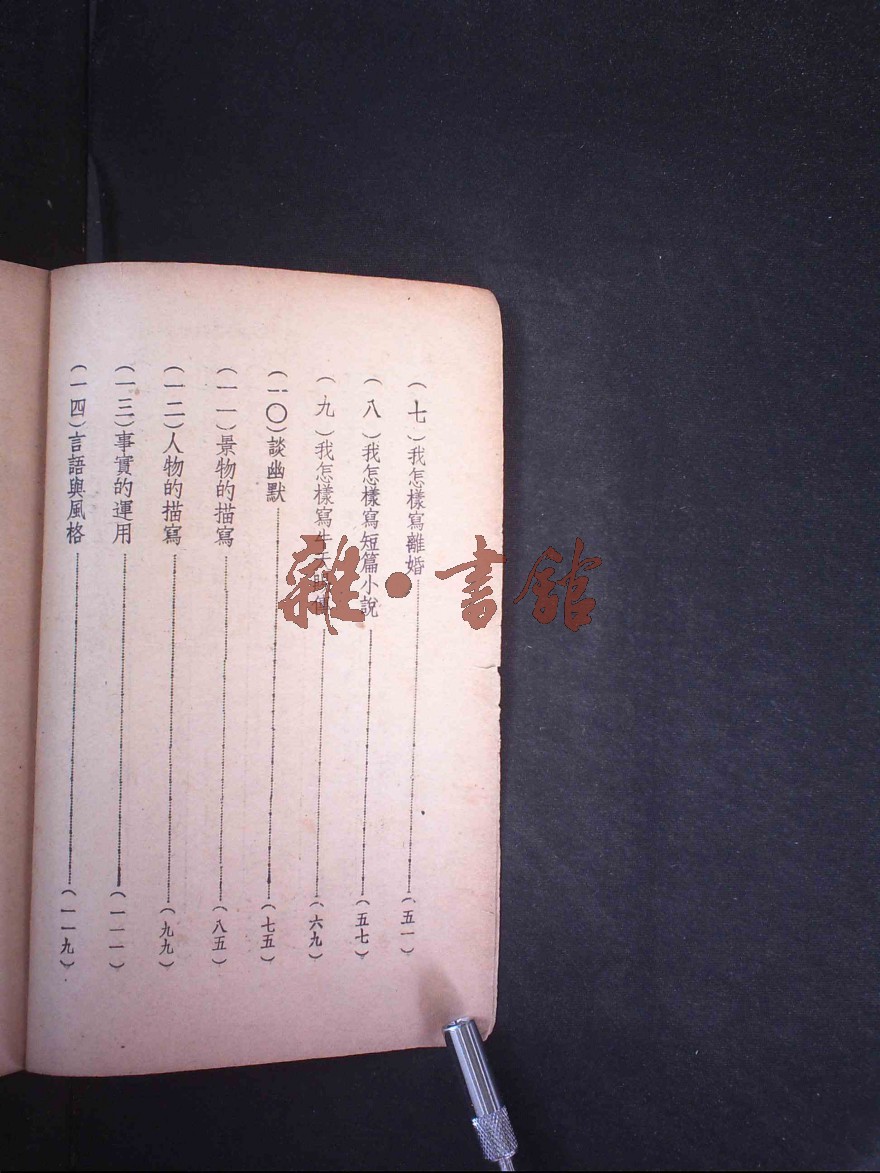 (七)我怎樣寫離婚………(五一)
(八)我怎樣寫短篇小說………(五七)
(九)我怎樣寫………(六九)
(一〇)談幽默………(七五)
(一一)景物的描寫………(八五)
(一二)人物的描寫………(九九)
(一三)事實的運用………(一一一)
(一四)言語與風格………(一一九)
雜·書館